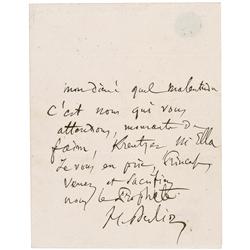 mon dieu quel malentendu
C'est nous qui vous
attendons, mourants de
faim, Kreutzer M. Ella
Je vous en prie, Prince,
Venez et sacrifiez
nous le Prophète
H. Berlioz